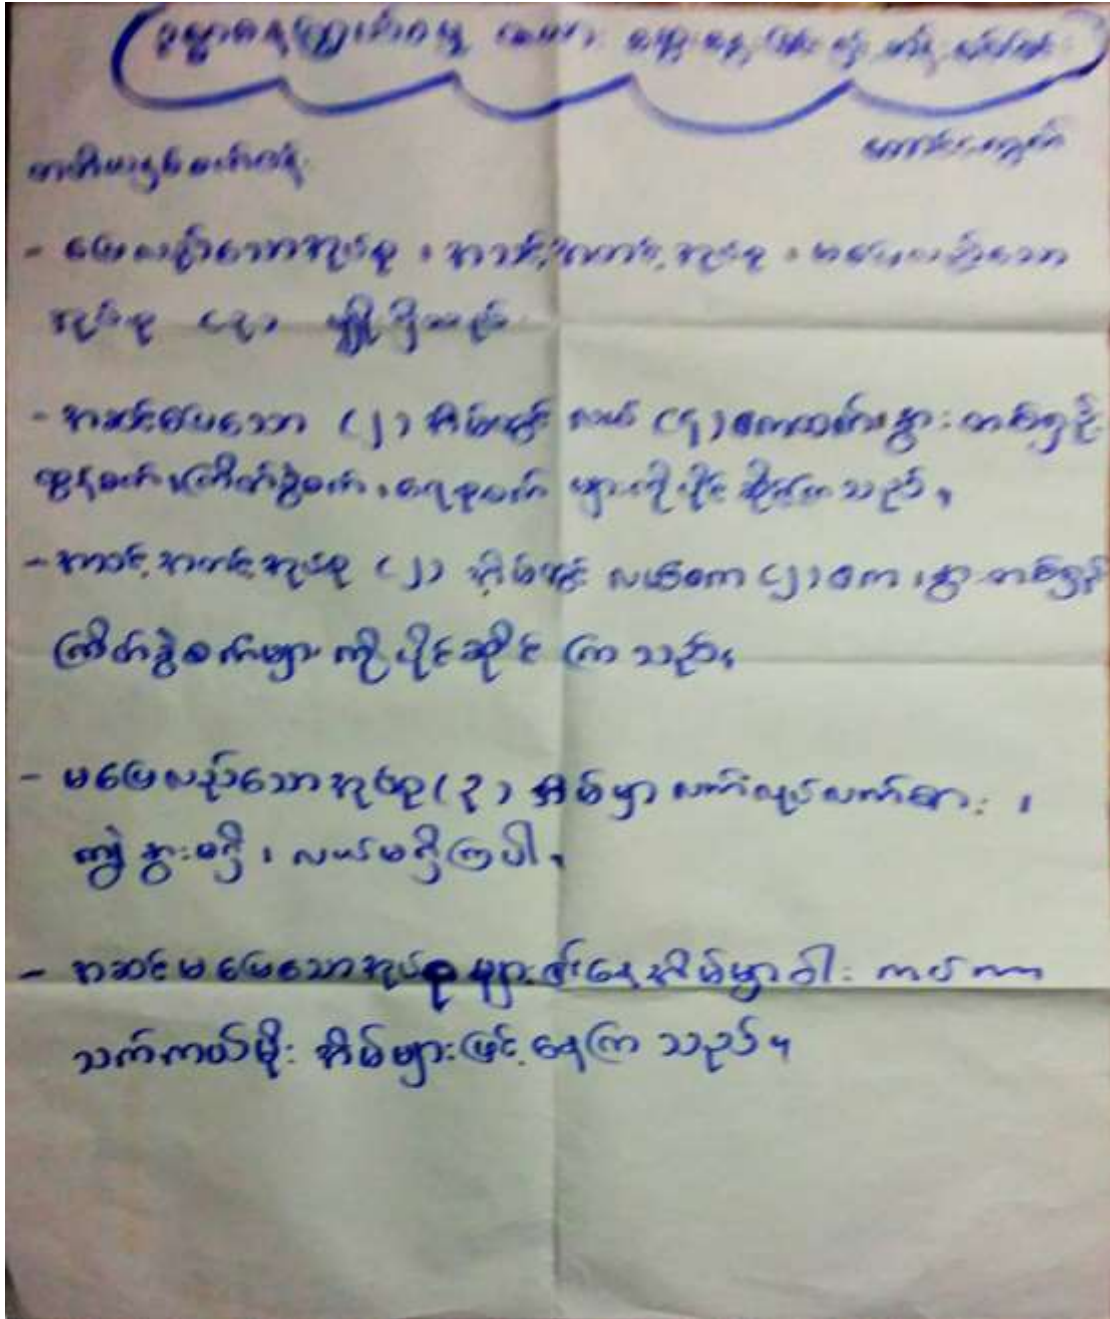 ဥစ္စာဓနကြွယ်ဝမှု
- မြေလည်သောအုပ်စု ၊ အသင့်အတင့်အုပ်စု ၊ မပြေလည်သော
အုပ်စု (၃) မျိုးရှိသည်
- အဆင်ပြေသော (၂) အိမ်တွင် လယ် (၅) ဧကထက်၊ နွား တစ်ရှဉ်း
ထွန်စက်၊ ကြိတ်ခွဲစက်၊ ရေစုပ်စက် များကို ပိုင်ဆိုင်ကြသည်။
- အသင့်အတင့်အုပ်စု (၂) အိမ်တွင် လယ်ဧက (၂) ဧက ၊ နွား တစ်ရှဉ်း
ကြိတ်ခွဲစက်များ ကို ပိုင်ဆိုင် ကြ သည်။
- မပြေလည်သောအုပ်စု (၃) အိမ်မှာ လက်လုပ်လက်စား ၊
ကျွဲနွားမရှိ ၊ လယ်မရှိကြပါ။
- အဆင်မပြေသောအုပ်စုများ၏နေအိမ်မှာ ဝါး ကပ်ကာ
သက်ကယ်မိုး အိမ်များဖြင့် နေကြ သည်။